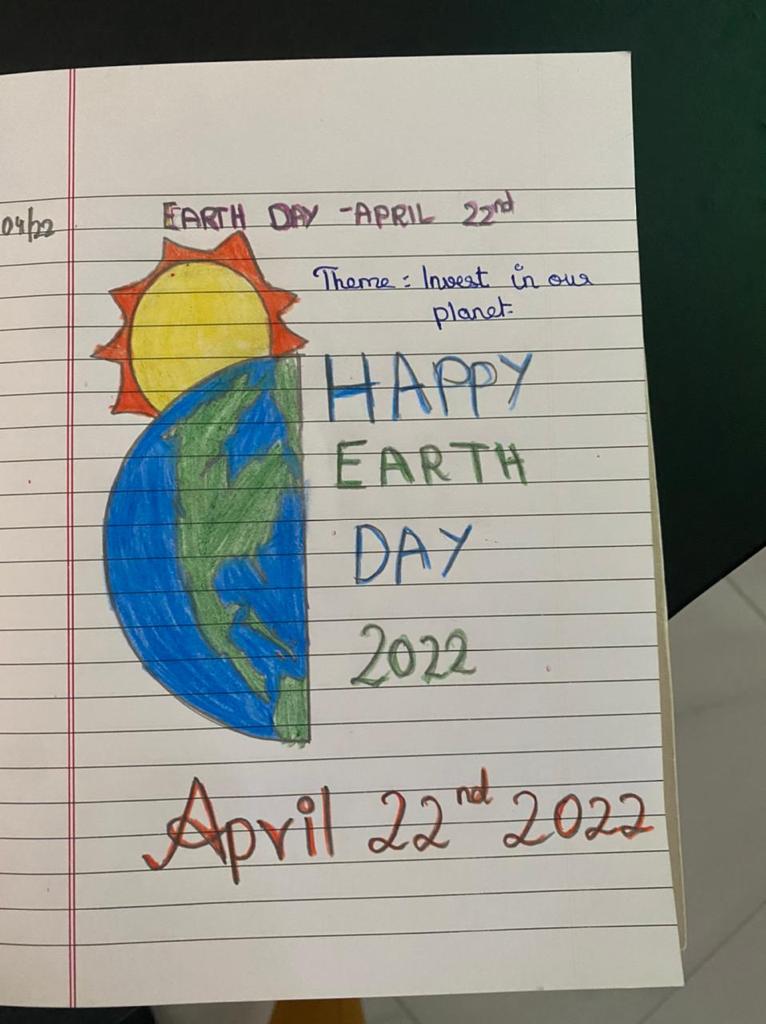 04/22
EARTH DAY - APRIL 22nd
Theme: Invest in our
planet.
HAPPY
EARTH
DAY
2022
April 22nd 2022